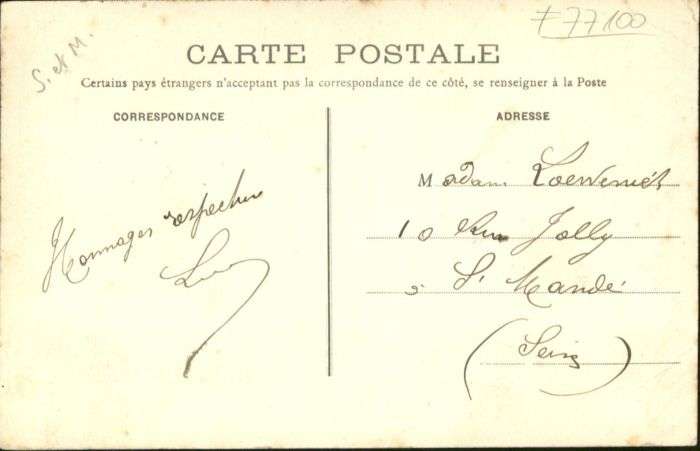 77100
S. et M.
CARTE POSTALE
Certains pays étrangers n'acceptant pas la correspondance de ce côté, se renseigner à la Poste
CORRESPONDANCE
Hommages respectueux
ADRESSE
Madame
10 Rue Jolly
à St Mandé
(Seine)